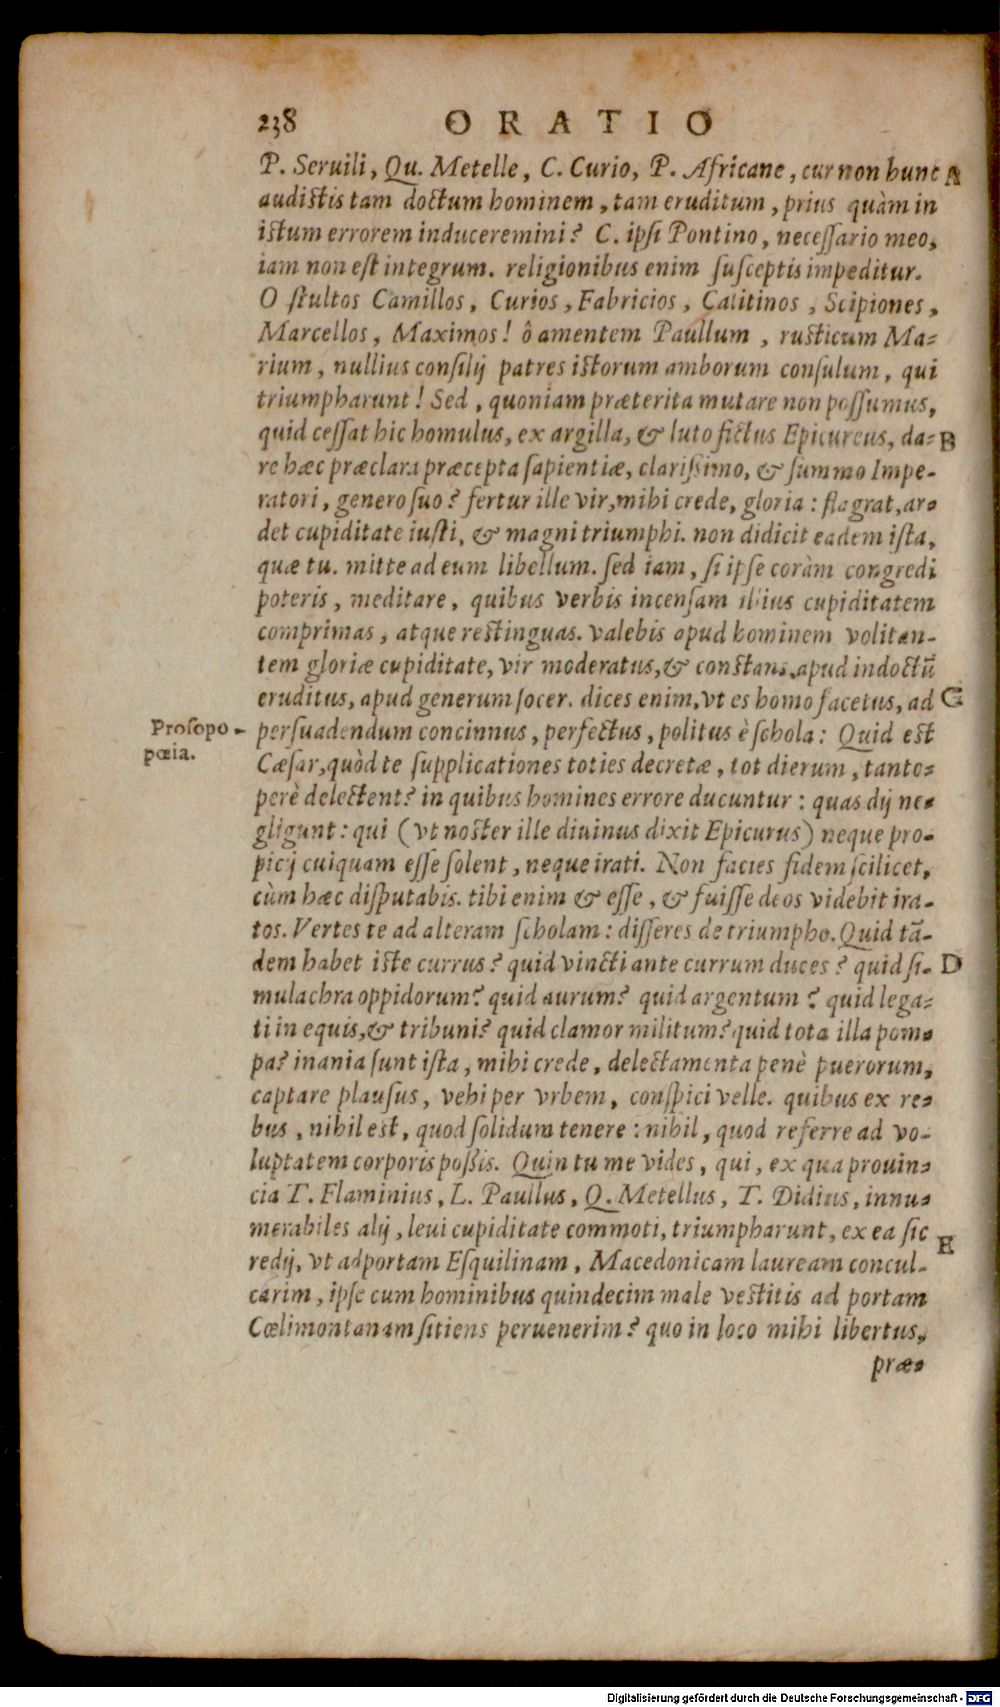 238 ORATIO
P. Seruili, Qu. Metelle, C. Curio, P. Africane, cur non hunc A
audistis tam doctum hominem, tam eruditum, prius quàm in
istum errorem induceremini? C. ipsi Pontino, necessario meo,
iam non est integrum. religionibus enim susceptis impeditur.
O stultos Camillos, Curios, Fabricios, Calitinos, Scipiones,
Marcellos, Maximos! ô amentem Paullum, rusticum Ma-
rium, nullius consilij patres istorum amborum consulum, qui
triumpharunt! Sed, quoniam præterita mutare non possumus,
quid cessat hic homulus, ex argilla, & luto fictus Epicureus, da- B
re hæc præclara præcepta sapientiæ, clarissimo, & summo Impe-
ratori, genero suo? fertur ille vir, mihi crede, gloria: flagrat, ar-
det cupiditate iusti, & magni triumphi. non didicit eadem ista,
quæ tu. mitte ad eum libellum. sed iam, si ipse coràm congredi
poteris, meditare, quibus verbis incensam illius cupiditatem
comprimas, atque restinguas. valebis apud hominem volitan-
tem gloriæ cupiditate, vir moderatus, & constans, apud indoctū
eruditus, apud generum socer. dices enim, vt es homo facetus, ad C
Prosopo- persuadendum concinnus, perfectus, politus è schola: Quid est
pœia. Cæsar, quòd te supplicationes toties decretæ, tot dierum, tanto-
perè delectent? in quibus homines errore ducuntur: quas dij ne-
gligunt: qui (vt noster ille diuinus dixit Epicurus) neque pro-
picij cuiquam esse solent, neque irati. Non facies fidem scilicet,
cùm hæc disputabis. tibi enim & esse, & fuisse deos videbit ira-
tos. Vertes te ad alteram scholam: disseres de triumpho. Quid tā-
dem habet iste currus? quid vincti ante currum duces? quid si- D
mulachra oppidorum? quid aurum? quid argentum? quid lega-
ti in equis, & tribuni? quid clamor militum? quid tota illa pom-
pa? inania sunt ista, mihi crede, delectamenta penè puerorum,
captare plausus, vehi per vrbem, conspici velle. quibus ex re-
bus, nihil est, quod solidum tenere: nihil, quod referre ad vo-
luptatem corporis possis. Quin tu me vides, qui, ex qua prouin-
cia T. Flaminius, L. Paullus, Q. Metellus, T. Didius, innu-
merabiles alij, leui cupiditate commoti, triumpharunt, ex ea sic E
redij, vt ad portam Esquilinam, Macedonicam lauream concul-
carim, ipse cum hominibus quindecim male vestitis ad portam
Cœlimontanam sitiens peruenerim? quo in loco mihi libertus,
præ-
Digitalisierung gefördert durch die Deutsche Forschungsgemeinschaft - DFG